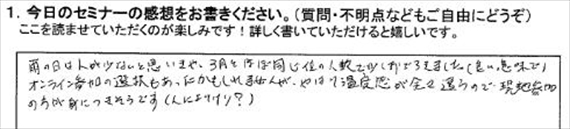 1. 今日のセミナーの感想をお書きください。(質問・不明点などもご自由にどうぞ)
ここを読ませていただくのが楽しみです！詳しく書いていただけると嬉しいです。
雨の日は人が少ないと思いきや、3月とほぼ同じ位の人数で少しおどろきました(良い意味で)
オンライン参加の選択もあったかもしれませんが、やはり温度感が全く違うので現地参加
の方が身につきそうです(人によりけり？)